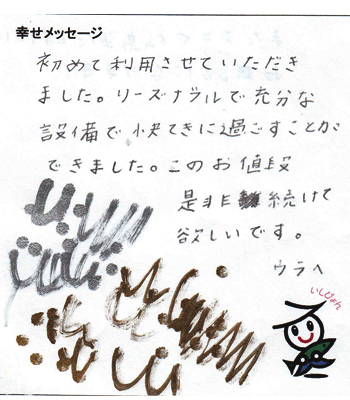 幸せメッセージ
初めて利用させていただき
ました。リーズナブルで充分な
設備で快てきに過ごすことが
できました。このお値段
是非続けて
欲しいです。
ウラへ
いしぴょん